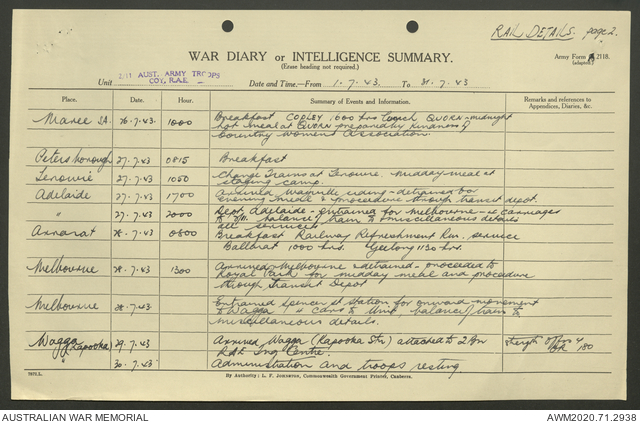 RAIL DETAILS. page 2.
WAR DIARY or INTELLIGENCE SUMMARY.
(Erase heading not required.)
Army Form 2118.
(adapted.)
Unit 2/11 AUST. ARMY TROOPS
COY. R.A.E.
Date and Time.—From 1.7.43. To 31.7.43
Place. Date. Hour. Summary of Events and Information. Remarks and references to
Appendices, Diaries, &c.
Maree SA. 26.7.43. 1000 Breakfast COPLEY 1600 hrs reach QUORN - midnight
hot meal at QUORN prepared by kindness of
Country Womens Association.
Petersborough 27.7.43 0815 Breakfast
Terowie 27.7.43 1050 Change Trains at Terowie. Midday meal at
staging camp.
Adelaide 27.7.43 1700 Arrived Wayville siding - detrained for
evening meal & procedure through transit depot.
" 27.7.43 2000 Dept. Adelaide - entrained for Melbourne - carriages
to balance train to miscellaneous details
all services
Ararat 28.7.43 0800 Breakfast Railway Refreshment Rm. service
Ballarat 1000 hrs. Geelong 1130 hrs.
Melbourne 28.7.43 1300 Arrived Melbourne detrained - proceeded to
Royal Park for midday meal and procedure
through Transit Depot
Melbourne 28.7.43. Entrained Spencer St Station for onward movement
to Wagga. 4 cars to Unit, balance train to
miscellaneous details.
Wagga (Kapooka) 29.7.43 Arrived Wagga (Kapooka Stn) attached to 2 Bn
RAE Trng Centre. Strength Offrs 4
OR 180
" 30.7.43 Administration and troops resting
7975.L. By Authority: L. F. Johnston, Commonwealth Government Printer, Canberra.
AUSTRALIAN WAR MEMORIAL AWM2020.71.2938